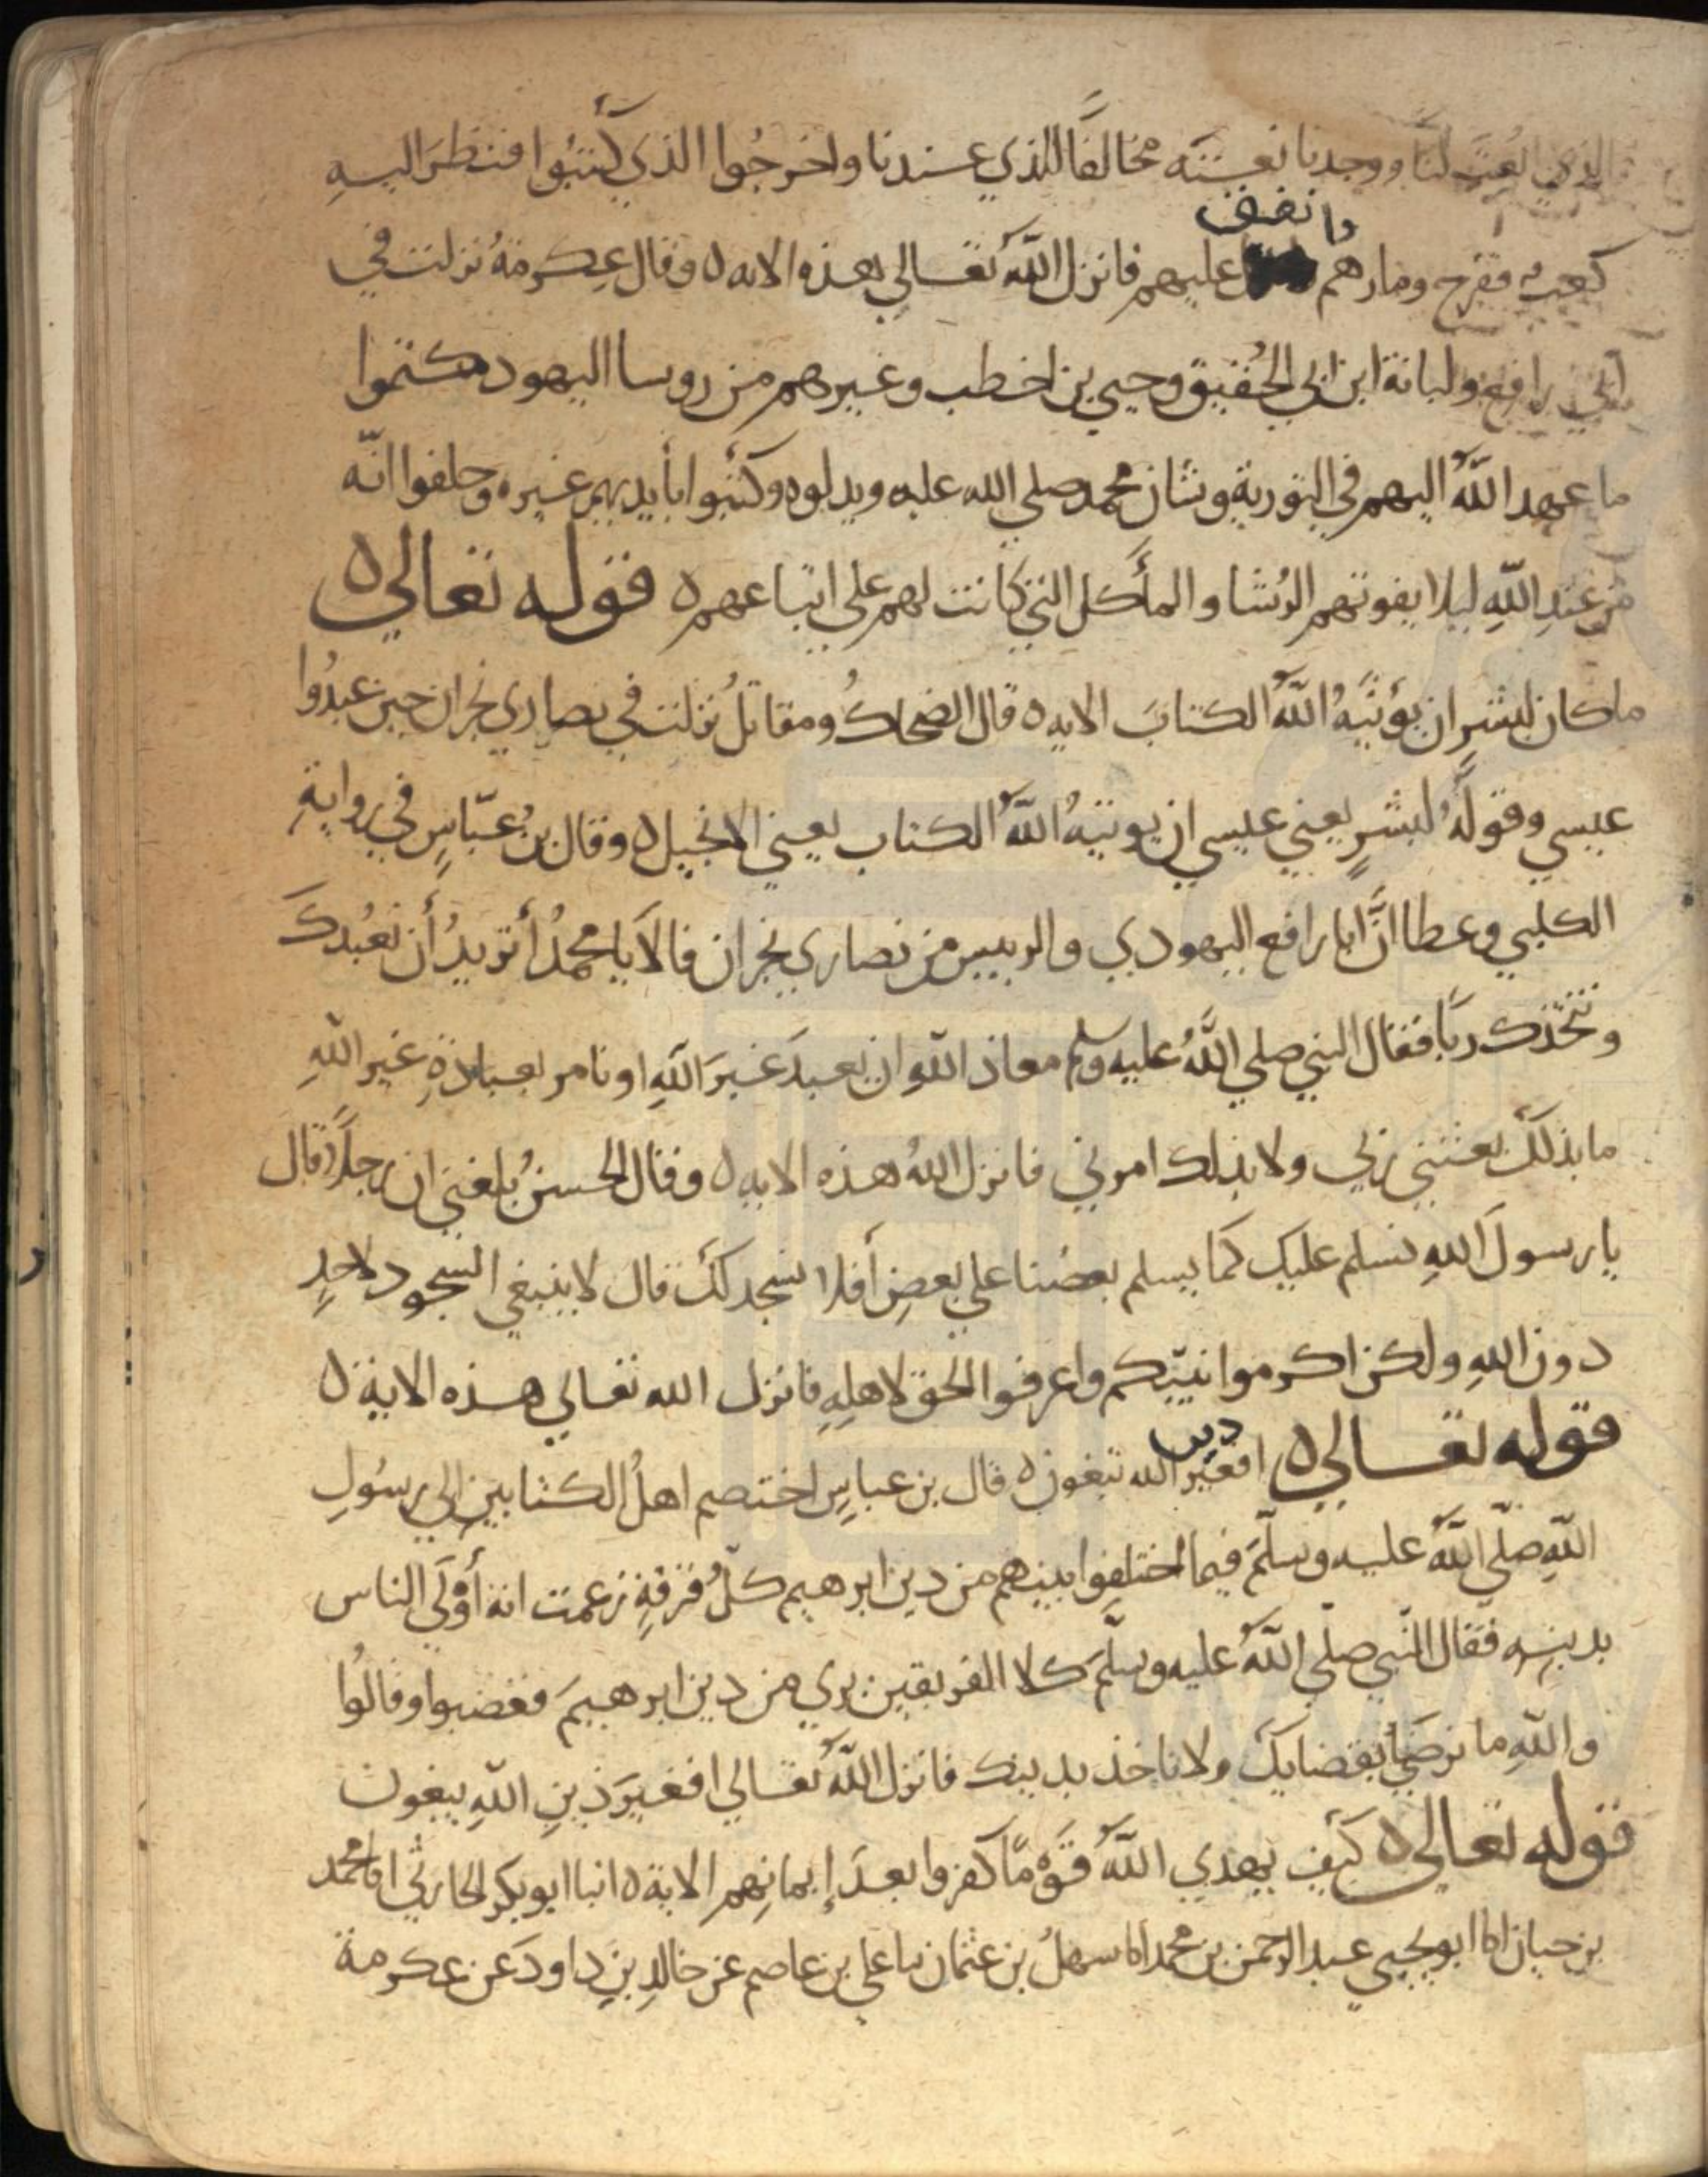 الذي نُعِتَ لنا ووجدنا نعـتَه مخالفًا للذي عندنا واخرجُوا الذي كتبُوا فنظرَ اليهِ
كعب ففرح ومارهم وانفق عليهم فانزل اللّهُ تعالي هذه الايه ٥ وقال عِكرمةُ نزلت في
ابي رافع ولبانة ابن ابي الحُقيق وحيي بن اخطب وغيرهم من روسا اليهود كتموا
ما عهد اللّهُ اليهم في التورية وشان محمد صلي الله عليه وبدلوه وكتبوا بأيديهم غيره وحلفوا انّه
من عندِ اللّهِ ليلا يفوتهم الرُشا والمأكل التي كانت لهم على اتباعهم ٥ قوله تعالي ٥
ماكان لبشرٍ ان يؤتيَهُ اللّهُ الكتابَ الايه ٥ قال الضحاكُ ومقاتلُ نزلت في نصاري نجران حين عبدُوا
عيسي وقولُهُ لبشرٍ يعني عيسي ان يوتيهُ اللّهُ الكتاب يعني الانجيل ٥ وقال بنُ عبّاسٍ في روايةِ
الكلبي وعطا انَّ ابا رافع اليهودي والربيس من نصاري نجران قالا يا محمدُ أتريدُ أن نعبُدكَ
ونتّخذك ربًا فقال النبي صلي اللّهُ عليه وسلم معاذ اللهِ ان يعبدَ غيرَ اللّهِ او نامر بعبادةِ غيرِ اللّهِ
ما بذلكَ بعثني ربي ولا بذلك امرني فانزل اللهُ هذه الايه ٥ وقال الحسنُ بلغني ان رجلًا قال
يا رسولَ اللهِ نسلم عليك كما يسلم بعضُنا علي بعضٍ أفلا نسجد لكَ قال لا ينبغي السجود لاحدٍ
دون اللهِ ولكن اكرموا نبيّكم واعرفوا الحق لاهلِهِ فانزل الله تعالي هذه الاية ٥
قوله تعالي ٥ افغير دين الله تبغون ٥ قال بن عباسٍ اختصم اهلُ الكتابين الي رسُولِ
اللّهِ صلّي اللّهُ عليه وسلّمَ فيما اختلفوا بينهم من دين ابرهيم كلُّ فرقةٍ زعمت انه أوْلَي الناس
بدينِهِ فقال النّبي صلّي اللّهُ عليه وسلّمَ كلا الفريقين بري من دين ابرهيمَ فغضبوا وقالُوا
واللّهِ ما نرضَي بقضايكَ ولا ناخذ بدينك فانزل اللّهُ تعالي افغيرَ دينِ اللّهِ يبغون
قوله تعالي ٥ كيف يهدي اللّهُ قَوْمًا كفروا بعدَ إيمانِهم الاية ٥ انبا ابو بكر الحارثي انا محمد
بن حيان انا ابو يحيي عبد الرحمن بن محمد انا سهلُ بن عثمان نا علي بن عاصم عن خالدِ بنِ داودَ عن عكرمة